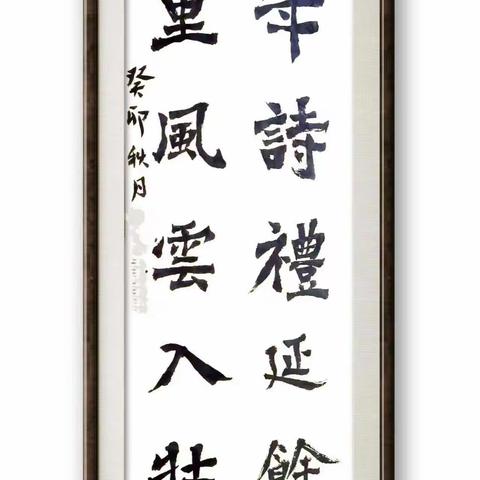 年詩禮延餘
里風雲入壯
癸卯秋月